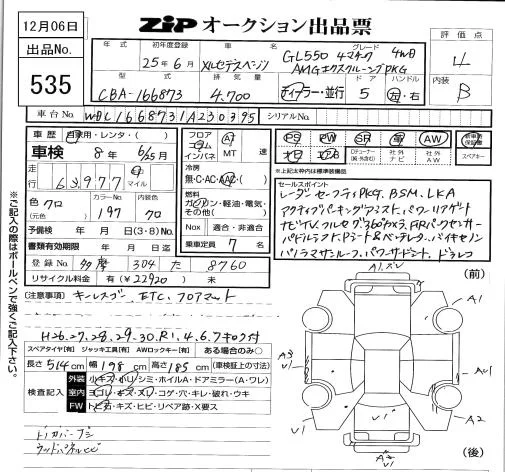 12月06日
ZIP オークション出品票
出品No.
535
年式
初年度登録
25年6月
車名
メルセデスベンツ
グレード
GL550 4マチック 4WD
AMGエクスクルーシブPKG
評価点
4
内装
B
型式
CBA-166873
排気量
4.700
ディーラー・並行
ドア
5
ハンドル
左・右
車台No.
WDC1668731A230395
シリアルNo.
車歴
自家用・レンタ・( )
車検
8年 6/25月
走行
63977
km
マイル
色
クロ
(元色)
カラーNo.
197
内装色
クロ
予備検 年 月 日(3・8)No.
書類有効期限 年 月 日迄
登録No.
多摩 304 た 8760
リサイクル料金
有(¥22920) 未
フロア
コラム
インパネ
AT
MT
速
冷房
無・C・AC・AAC・( )
燃料
ガソリン・軽油・電気・
その他( )
Nox
適合・非適合
乗車定員
7名
PS
PW
SR
革
AW
ナビ
TV
エアB
Dチューナー
(純・外含む)
社外
ナビ
社外
AW
新車時
保証書
スペアキー
※上記太枠内は標準装備品
セールスポイント
レーダーセーフティPKG. BSM. LKA
アクティブパーキングアシスト. パワーリアゲート
ナビTV. クルコン 360°カメラ. F/Rパークセンサー
パドルシフト. Pシート&ベンチレーター. バイキセノン
パノラマサンルーフ. パワーサドシート. ドラレコ
(注意事項)
キーレスゴー. ETC. フロアマット
H26.27.28.29.30.R1.4.6.7キロク付
スペアタイヤ[有] ジャッキ工具[有] AWロックキー[有] ある場合のみ○
長さ514cm 幅198cm 高さ185cm (車検証上の寸法)
検査記入
外装
小キズ・凹リ・シミ・ホイルA・ドアミラー(A・ワレ)
室内
ヨゴレ・キズ・スレ・コゲ・穴・キレ・破れ・ウキ
FW
トビ石・キズ・ヒビ・リペア跡・X要ス
ウッドパネルヒビ
※ご記入の際はボールペンで強くご記入下さい。
(前)
A1.ズレ
A1
A3
V1
AW1
V1
V1
A2
A2
V1
(後)